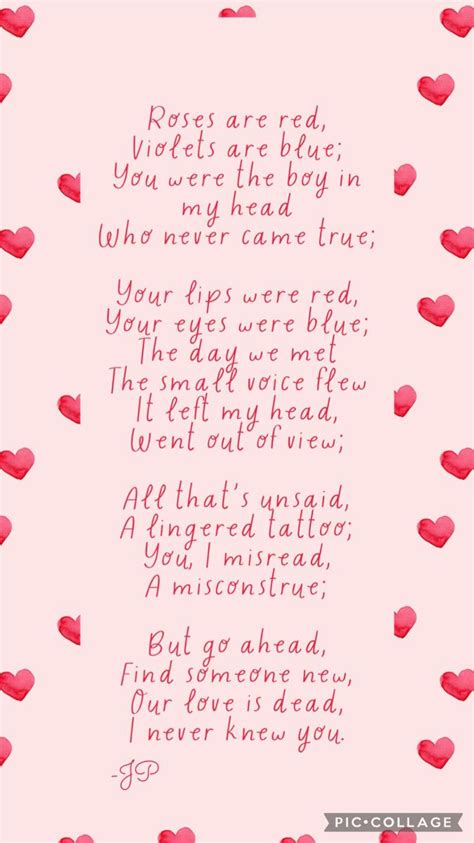 Roses are red,
Violets are blue;
You were the boy in
my head
Who never came true;

Your lips were red,
Your eyes were blue;
The day we met
The small voice flew
It left my head,
Went out of view;

All that's unsaid,
A lingered tattoo;
You, I misread,
A misconstrue;

But go ahead,
Find someone new,
Our love is dead,
I never knew you.
-JP
PIC•COLLAGE